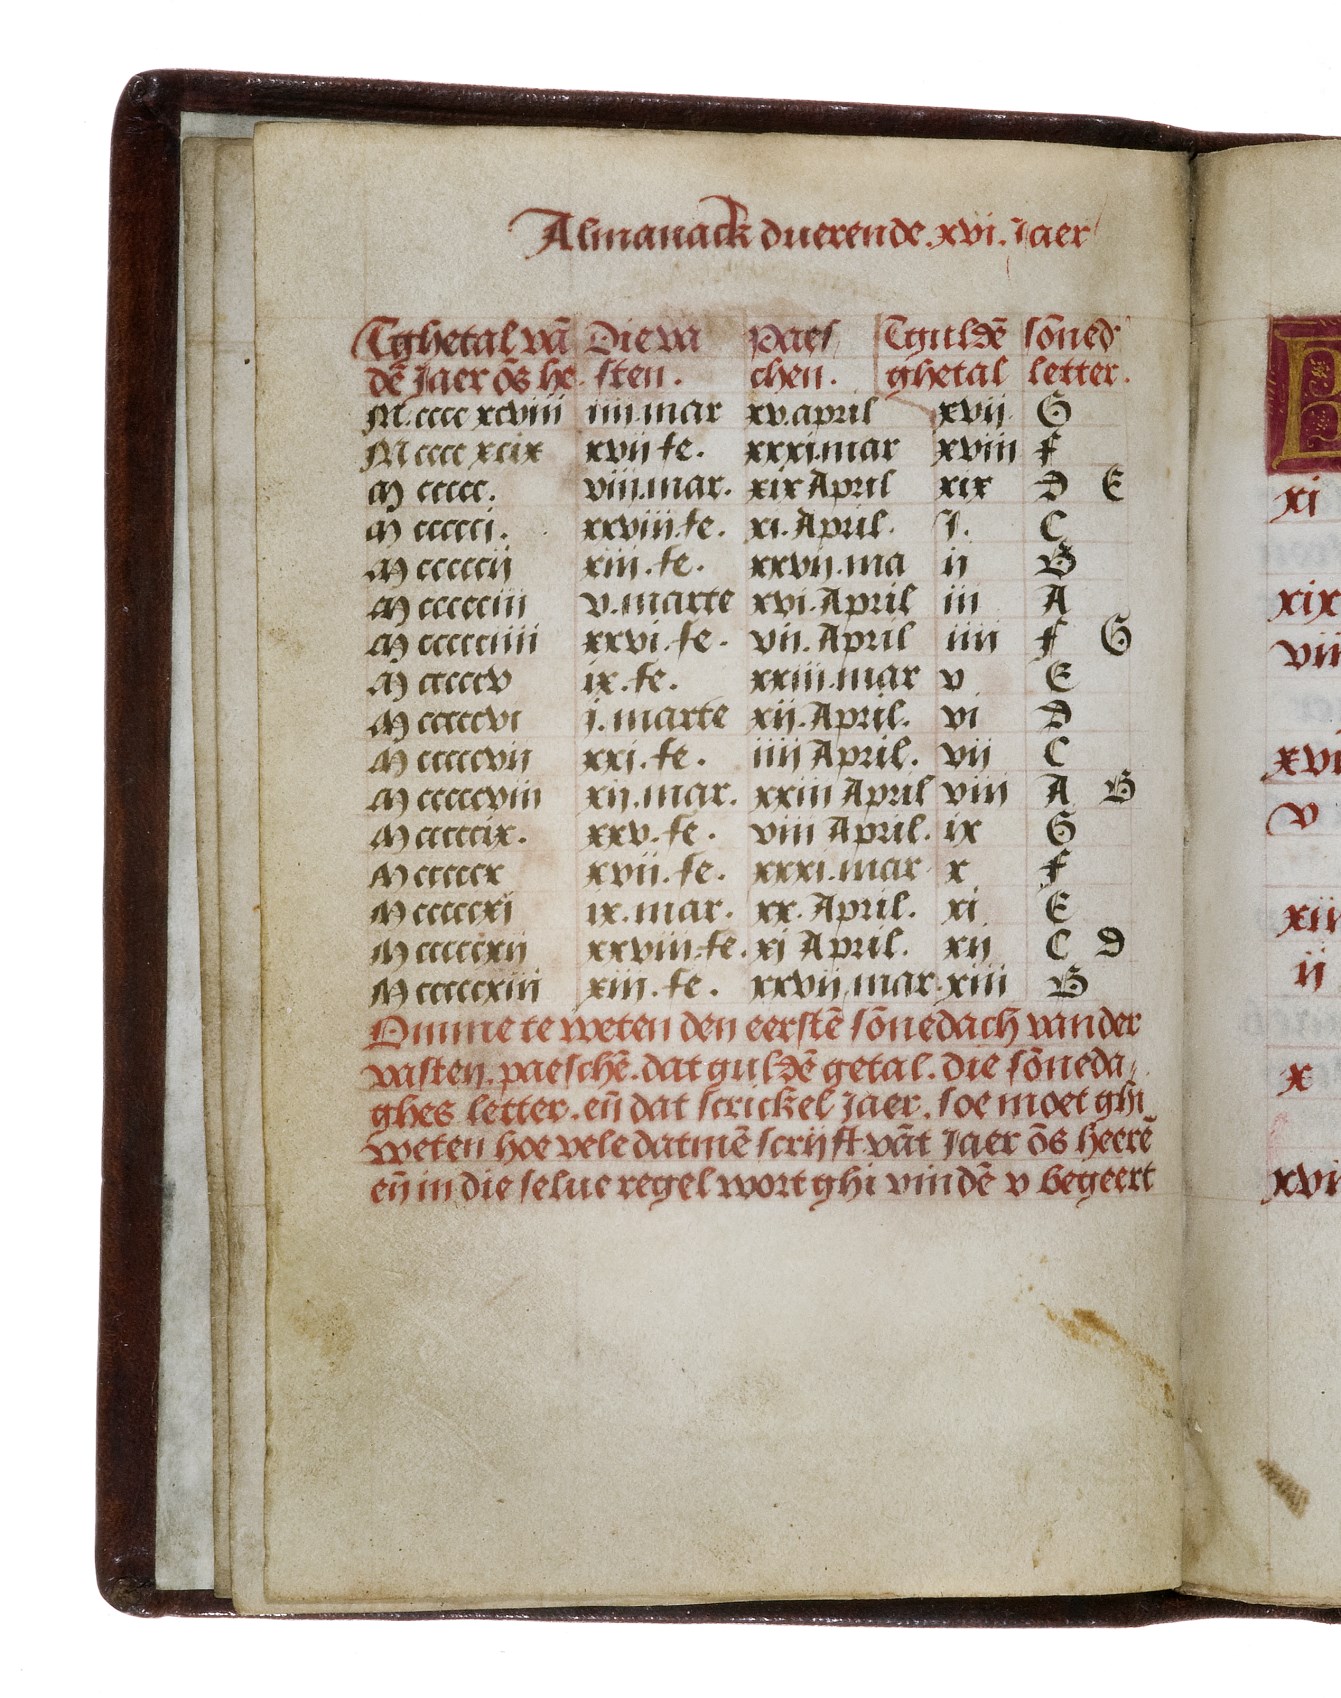 Almanack duerende .xvi. Jaer
Tghetal vā Die va Paes Tguldē sōned'
dē Jaer ōs he. sten. chen. ghetal letter.
M.cccc xcviii iiii.mar xv.april xvii G
M cccc xcix xvii fe. xxxi.mar xviii F
M ccccc. viii.mar. xix April xix D E
M cccccj. xxviii.fe. xi. April. J. C
M cccccij xiii.fe. xxvii.ma ij B
M ccccciii v.marte xvi.April iii A
M ccccciiii xxvi.fe. vii. April iiii F G
M cccccv ix.fe. xxiii.mar v E
M cccccvi j.marte xij.April. vi D
M cccccvij xxj.fe. iiij April. vij C
M cccccviii xij.mar. xxiii April viii A B
M cccccix. xxv.fe. viii April. ix G
M cccccx xvij.fe. xxxi.mar x F
M cccccxi ix.mar. xx.April. xi E
M cccccxij xxviii.fe. xj April. xij C D
M cccccxiii xiii.fe. xxvij.mar. xiii B
Omme te weten den eerstē sōnedach vander
vasten. paeschē. dat guldē getal. die sōneda,
ghes letter. eñ dat scrickel Jaer. soe moet ghi
weten hoe vele datmē scrijft vāt Jaer ōs heerē
eñ in die selue regel wort ghi vindē v begeert
xi
xix
viii
v
xii
ij
x